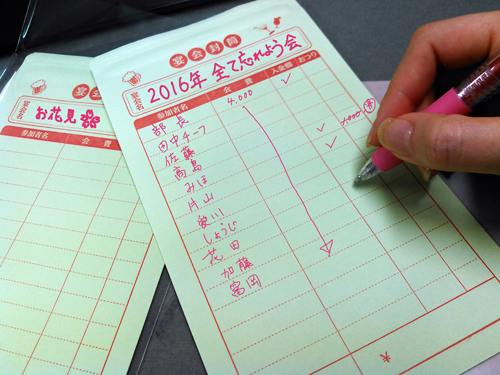 宴会封筒
宴会名 2016年 全て忘れよう会
参加者名 会費 入金額 おつり
部長 4.000 ✓
田中チーフ
佐藤 ✓ 1.000 済
高島 ✓
みほ
片山
愛川
しょうじ
花田
加藤
富岡
宴会
宴会名 お花見
参加者名 会費